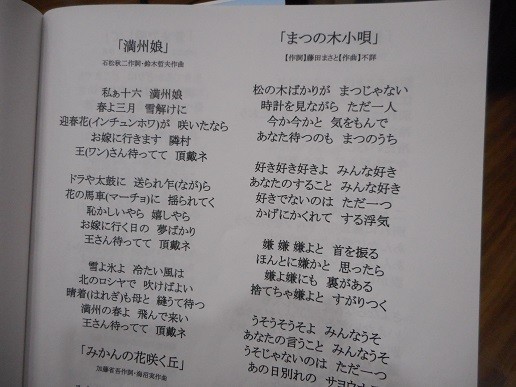 「満州娘」
石松秋二作詞・鈴木哲夫作曲
私ぁ十六 満州娘
春よ三月 雪解けに
迎春花(インチュンホワ)が 咲いたなら
お嫁に行きます 隣村
王(ワン)さん待ってて 頂戴ネ
ドラや太鼓に 送られ乍(なが)ら
花の馬車(マーチョ)に 揺られてく
恥かしいやら 嬉しやら
お嫁に行く日の 夢ばかり
王さん待ってて 頂戴ネ
雪よ氷よ 冷たい風は
北のロシヤで 吹けばよい
晴着(はれぎ)も母と 縫うて待つ
満州の春よ 飛んで来い
王さん待ってて 頂戴ネ
「みかんの花咲く丘」
加藤省吾作詞・海沼実作曲
「まつの木小唄」
【作詞】藤田まさと【作曲】不詳
松の木ばかりが まつじゃない
時計を見ながら ただ一人
今か今かと 気をもんで
あなた待つのも まつのうち
好き好き好きよ みんな好き
あなたのすること みんな好き
好きでないのは ただ一つ
かげにかくれて する浮気
嫌 嫌 嫌よと 首を振る
ほんとに嫌かと 思ったら
嫌よ嫌にも 裏がある
捨てちゃ嫌よと すがりつく
うそうそうそよ みんなうそ
あなたの言うこと みんなうそ
うそじゃないのは ただ一つ
あの日別れの サヨウ